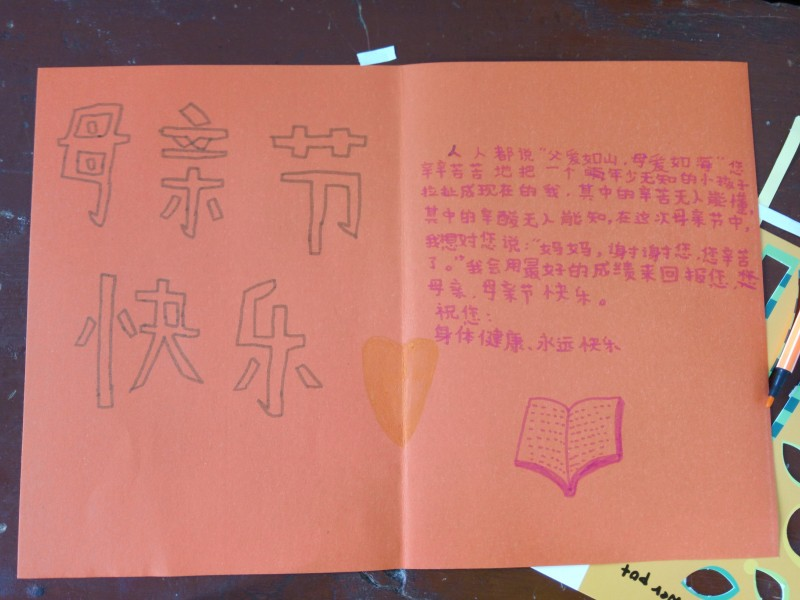 母亲节
快乐
人人都说“父爱如山,母爱如海”您
辛辛苦苦地把一个嘛年少无知的小孩子
拉扯成现在的我,其中的辛苦无人能懂,
其中的辛酸无人能知,在这次母亲节中,
我想对您说:“妈妈,谢谢您,您辛苦
了。”我会用最好的成绩来回报您,您
母亲,母亲节快乐。
祝您:
身体健康、永远快乐
wer pot